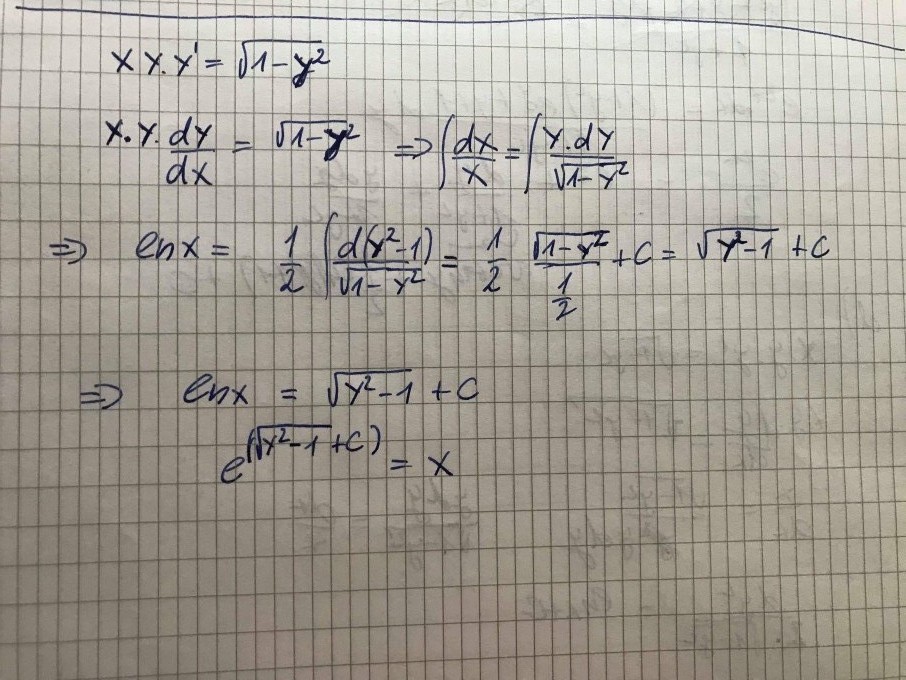 x y. y' = √1-y²
x. y. dy/dx = √1-y² ⇒ ∫dx/x = ∫y.dy/√1-y²
⇒ lnx = 1/2 ∫d(y²-1)/√1-y² = 1/2 √1-y²/(1/2) + C = √y²-1 + C
⇒ lnx = √y²-1 + C
e^(√y²-1 + C) = x